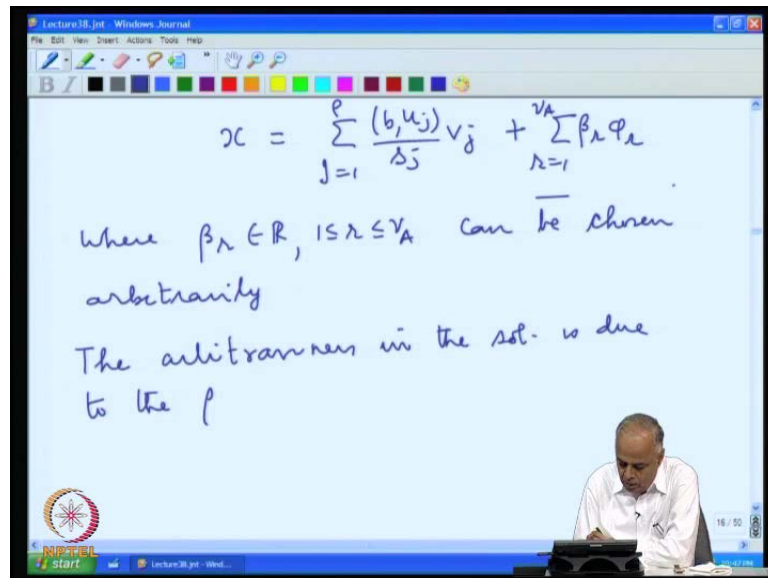 Lecture38.jnt - Windows Journal
File Edit View Insert Actions Tools Help
B I
x = ρ∑j=1 (b, uj)/sj vj + νA∑r=1 βr φr
where βr ∈ ℝ, 1≤r≤νA can be chosen
arbitrarily
The arbitrariness in the sol. is due
to the ρ
16 / 50
NPTEL
start
Lecture38.jnt - Wind...